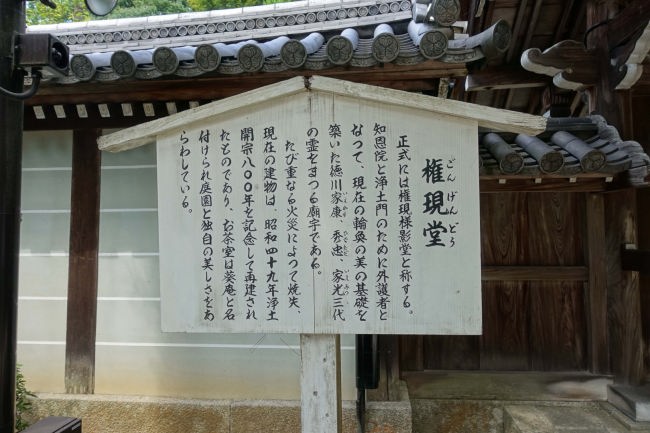 権現堂
ごんげんどう
正式には権現様影堂と称する。
知恩院と浄土門のために外護者と
なって、現在の輪奐の美の基礎を
築いた徳川家康、秀忠、家光三代
いえやす
ひでただ
いえみつ
の霊をまつる廟宇である。
たび重なる火災によって焼失、
現在の建物は、昭和四十九年浄土
開宗八〇〇年を記念して再建され
たものであり、お茶室は葵庵と名
付けられ庭園と独自の美しさをあ
らわしている。